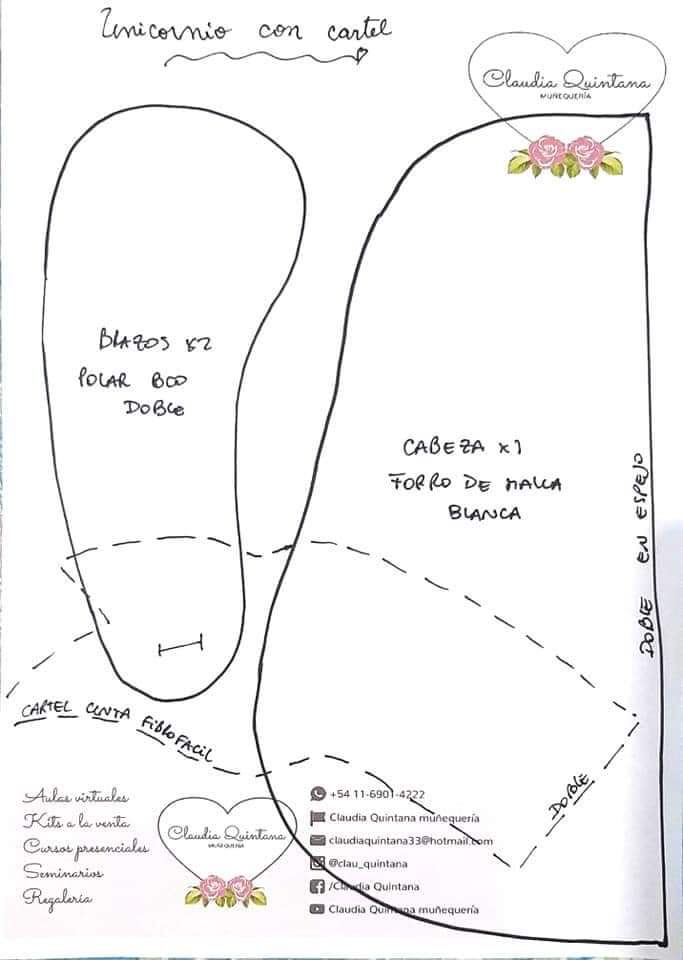 Unicornio con cartel
Claudia Quintana
MUÑEQUERÍA
BRAZOS x2
POLAR BCO
DOBLE
CABEZA x1
FORRO DE MALLA
BLANCA
DOBLE EN ESPEJO
CARTEL CINTA FIBROFACIL
DOBLE
Aulas virtuales
Kits a la venta
Cursos presenciales
Seminarios
Regalería
Claudia Quintana
MUÑEQUERÍA
+54 11-6901-4222
Claudia Quintana muñequería
claudiaquintana33@hotmail.com
@clau_quintana
/Claudia Quintana
Claudia Quintana muñequería